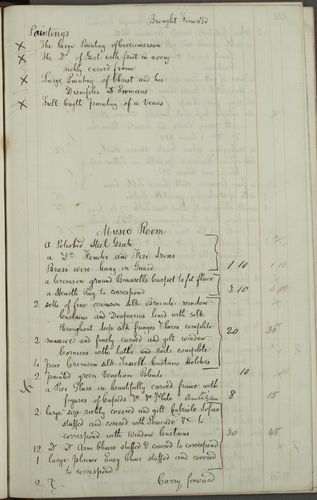 Brought Forward
Paintings
x The large Painting of Circumcision
x The Do of Girl with fruit in a very
richly carved frame
x Large Painting of Christ and his
Disciples at Emmaus
x Full length painting of a Venus
Music Room
a Polished Steel Grate
a Do Fender and Fire Irons
Brass wire hang on Guard 1 10 1 10
a Crimson ground Brussells Carpet to fit floor
a Hearth Rug to correspond 3 10
2 setts of fine crimson Silk Brocade window
Curtains and Draperies lined with silk
throughout deep silk fringes & laces complete
2 massive and finely carved and gilt window
Cornices with laths and rods complete 20 35
4 pair Crimson Silk Tassell Curtain Holders
2 painted green Venetian Blinds 10
a Pier Glass in beautifully carved frame with
figures of Cupids &c &c Plate 8 15
2 large size richly covered and gilt Cabriole Sofas
stuffed and covered with Brocade &c to
correspond with Window Curtains 30 45
12 Do Do Arm Chairs stuffed & covered to correspond
1 large Planner Easy Chair stuffed and covered
to correspond
Carry forward